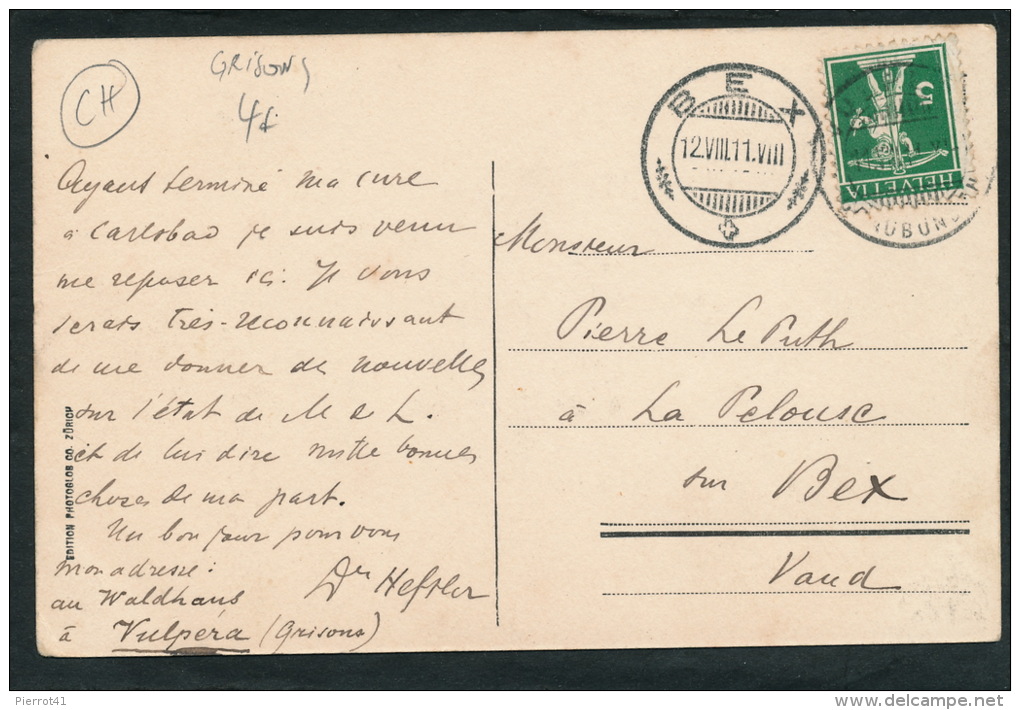 CH
GRISONS
4f
Ayant terminé ma cure
à Carlsbad je suis venu
me reposer ici. Je vous
serais très-reconnaissant
de me donner de nouvelles
sur l'état de M de L.
et de lui dire mille bonnes
choses de ma part.
Un bonjour pour vous
mon adresse:
au Waldhaus
à Vulpera (Grisons)
Dr Heftler
EDITION PHOTOGLOB CO. ZÜRICH
BEX
12.VIII.11.VIII
5
HELVETIA
Monsieur
Pierre Le Puth
à La Pelouse
sur Bex
Vaud
Pierrot41
delcampe.net